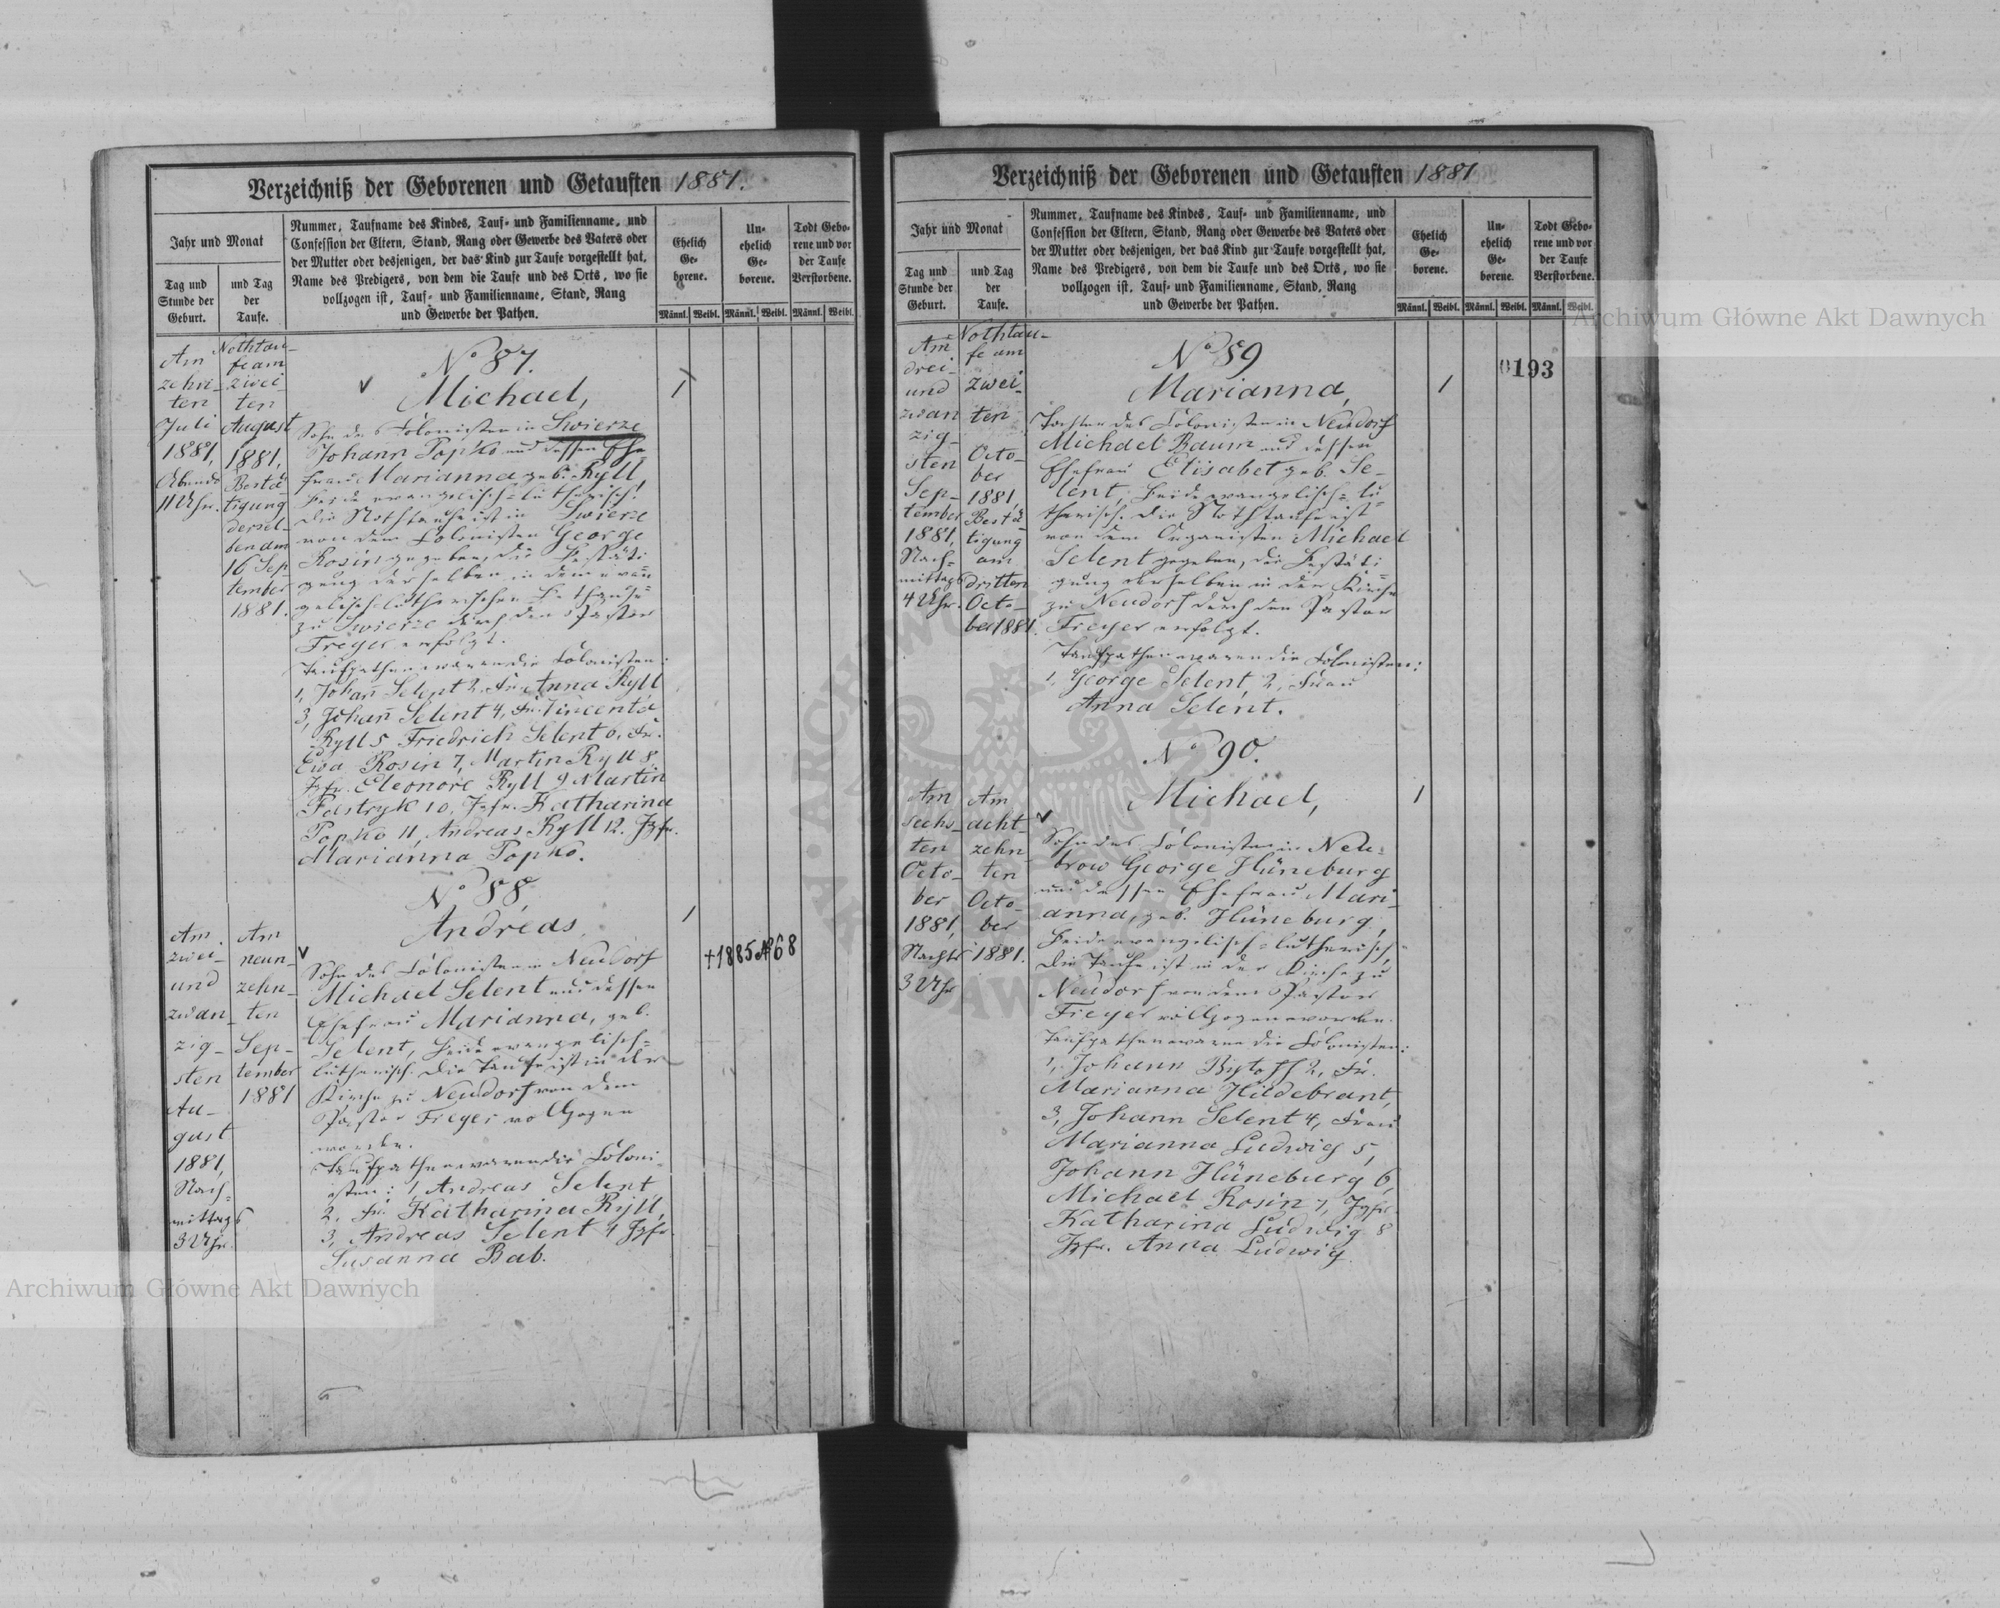 Verzeichniß der Geborenen und Getauften 1881.
Jahr und Monat
Tag und
Stunde der
Geburt.
und Tag
der
Taufe.
Nummer, Taufname des Kindes, Tauf- und Familienname, und
Confession der Eltern, Stand, Rang oder Gewerbe des Vaters oder
der Mutter oder desjenigen, der das Kind zur Taufe vorgestellt hat,
Name des Predigers, von dem die Taufe und des Orts, wo sie
vollzogen ist, Tauf- und Familienname, Stand, Rang
und Gewerbe der Pathen.
Ehelich
Ge-
borene.
Un-
ehelich
Ge-
borene.
Todt Gebo-
rene und vor
der Taufe
Verstorbene.
Männl. Weibl. Männl. Weibl. Männl. Weibl.
Am
zehn-
ten
Juli
1881,
Abends
11 Uhr.
Nothtau-
fe am
zwei-
ten
August
1881,
Bestä-
tigung
dersel-
ben am
16 Sep
tember
1881.
No 87.
Michael,
1
Sohn des Colonisten in Swierze
Johann Popko und dessen Ehe
frau Marianna geb. Ryll
beide evangelisch-lutherisch.
Die Nothtaufe ist in Swierze
von dem Colonisten George
Rosin gegeben, die Bestäti-
gung derselben in dem evan-
gelisch lutherischen Bethause
zu Swierze durch den Pastor
Freyer erfolgt.
Taufpathen waren die Colonisten:
1, Johañ Selent 2, Fr. Anna Ryll
3, Johañ Selent 4, Fr. Vincenta
Ryll 5 Friedrich Selent 6, Fr.
Ewa Rosin 7, Martin Ryll 8.
Jgfr. Eleonore Ryll 9 Martin
Pastryk 10, Jgfr. Katharina
Popko 11, Andreas Ryll 12. Jgfr.
Marianna Popko.
Am
zwei-
und
zwan-
zig-
sten
Au-
gust
1881,
Nach-
mittags
3 Uhr.
Am
neun-
zehn-
ten
Sep-
tember
1881
No 88,
Andreas,
1
+1885 No 68
Sohn des Colonisten in Neudorf
Michael Selent und dessen
Ehefrau Marianna, geb.
Selent, beide evangelisch-
lutherisch. Die Taufe ist in der
Kirche zu Neudorf von dem
Pastor Freyer vollzogen
worden.
Taufpathen waren die Coloni-
sten: 1, Andreas Selent
2, Fr. Katharina Ryll,
3, Andreas Selent 4 Jgfr.
Susanna Bab.
Verzeichniß der Geborenen und Getauften 1881
Jahr und Monat
Tag und
Stunde der
Geburt.
und Tag
der
Taufe.
Nummer, Taufname des Kindes, Tauf- und Familienname, und
Confession der Eltern, Stand, Rang oder Gewerbe des Vaters oder
der Mutter oder desjenigen, der das Kind zur Taufe vorgestellt hat,
Name des Predigers, von dem die Taufe und des Orts, wo sie
vollzogen ist, Tauf- und Familienname, Stand, Rang
und Gewerbe der Pathen.
Ehelich
Ge-
borene.
Un-
ehelich
Ge-
borene.
Todt Gebo-
rene und vor
der Taufe
Verstorbene.
Männl. Weibl. Männl. Weibl. Männl. Weibl.
Am
drei-
und
zwan
zig-
sten
Sep-
tember
1881,
Nach-
mittags
4 Uhr.
Nothtau-
fe am
zwei-
ten
Octo-
ber
1881,
Bestä-
tigung
am
dritten
Octo-
ber 1881.
No 89
Marianna,
1
0193
Tochter des Colonisten in Neudorf
Michael Baum und dessen
Ehefrau Elisabet geb. Se-
lent, beide evangelisch-lu-
therisch. Die Nothtaufe ist
von dem Organisten Michael
Selent gegeben, die Bestäti
gung derselben in der Kirche
zu Neudorf durch den Pastor
Freyer erfolgt.
Taufpathen waren die Colonisten:
1, George Selent, 2, Frau
Anna Selent.
Am
sechs-
ten
Octo-
ber
1881,
Nachts
3 Uhr
Am
acht-
zehn
ten
Octo-
ber
1881.
No 90.
Michael,
1
Sohn des Colonisten in Neu-
brow George Hüneburg
und dessen Ehefrau Mari-
anna, geb. Hüneburg,
beide evangelisch-lutherisch,
Die Taufe ist in der Kirche zu
Neudorf von dem Pastor
Freyer vollzogen worden.
Taufpathen waren die Colonisten:
1, Johann 2, Fr.
Marianna Hildebrant,
3, Johann Selent 4, Frau
Marianna Ludwig 5,
Johann Hüneburg 6,
Michael Rosin 7, Jgfr.
Katharina Ludwig 8
Jgfr. Anna Ludwig.
Archiwum Główne Akt Dawnych
Archiwum Główne Akt Dawnych